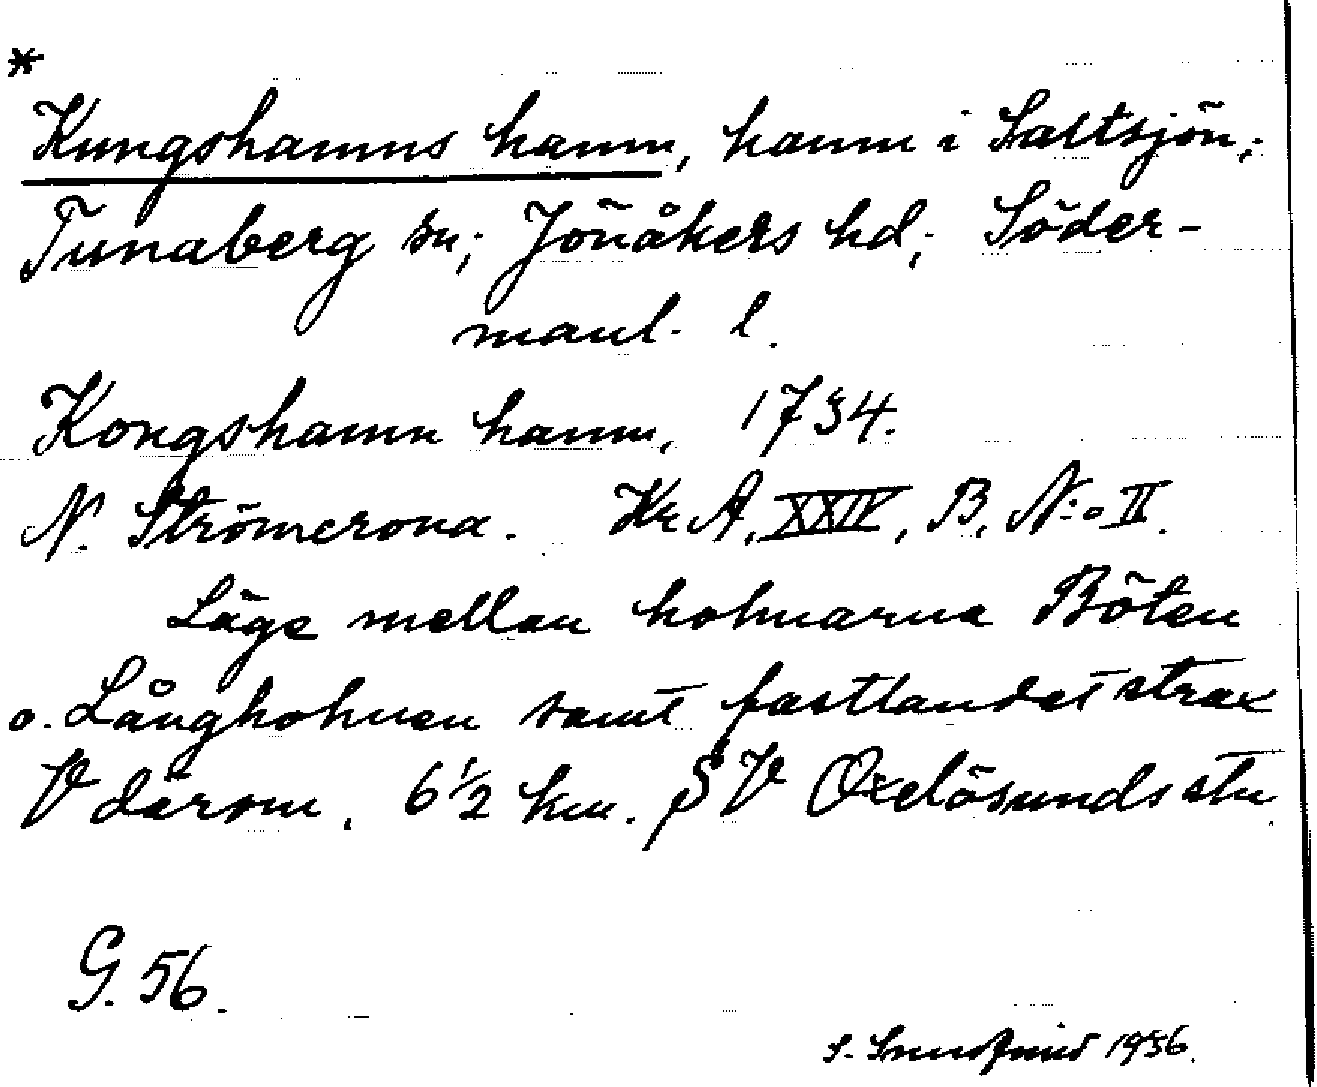 *
Kungshamns hamn, hamn i Saltsjön;
Tunaberg sn; Jönåkers hd; Söder-
manl. l.
Kongshamn hamn, 1734.
N. Strömcrona. Kr A, XXIV, B, N:o II.
Läge mellan holmarna Böten
o. Långholmen samt fastlandet strax
V därom. 6 1/2 km. SV Oxelösunds stn
G. 56.
S. 1936.